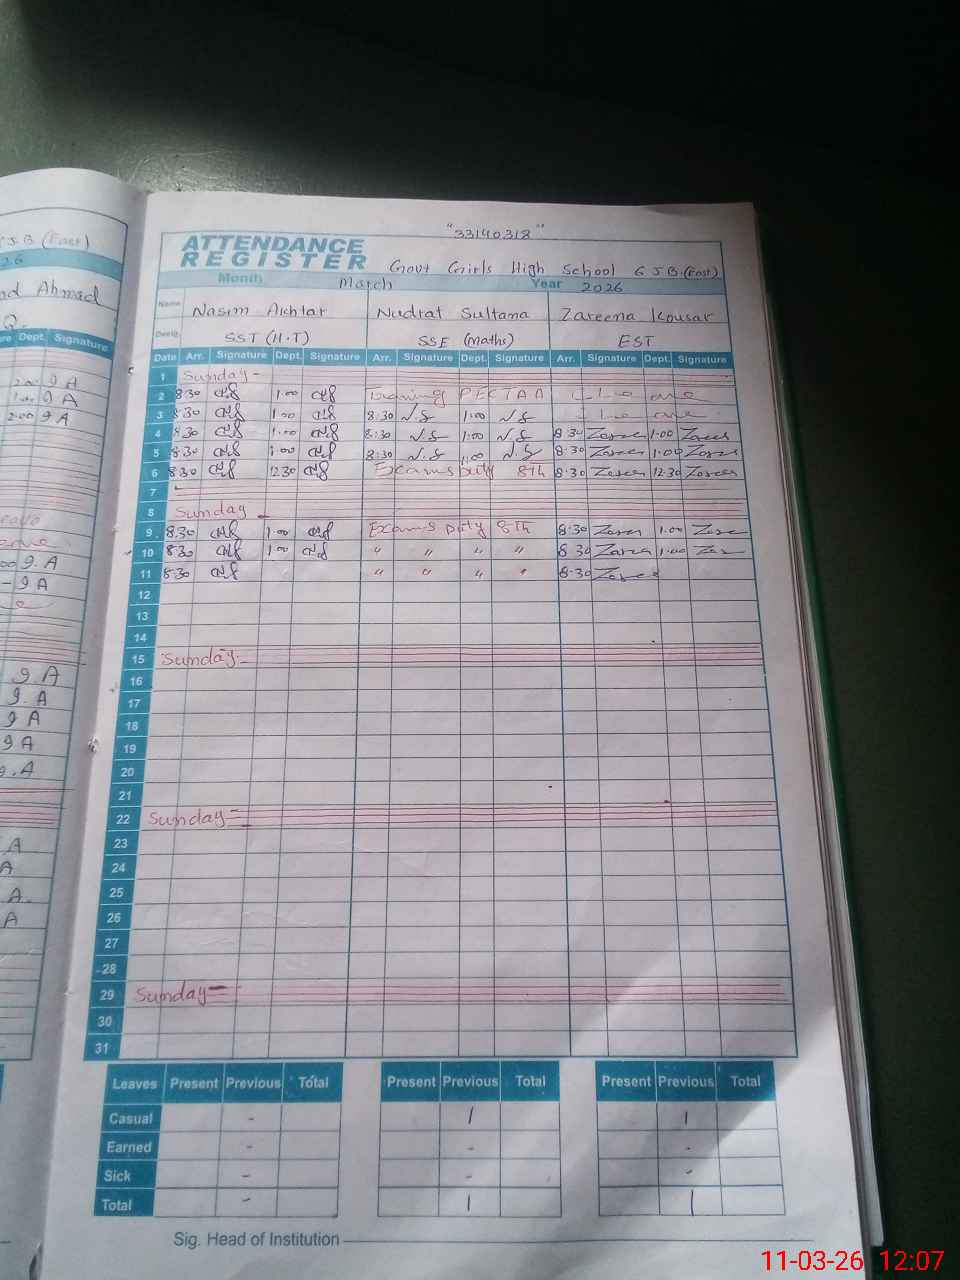 "33140318"
ATTENDANCE REGISTER
Govt Girls High School 6 J.B.(East)
Month March Year 2026
Name Nasim Akhtar Nudrat Sultana Zareena Kousar
Desig. SST (H.T) SSE (maths) EST
Date Arr. Signature Dept. Signature Arr. Signature Dept. Signature Arr. Signature Dept. Signature
1 Sunday
2 8:30 1:00 Training PECTAA
3 8:30 1:00 8:30 N.S 1:00 N.S
4 8:30 1:00 8:30 N.S 1:00 N.S 8:30 1:00
5 8:30 1:00 8:30 N.S 1:00 N.S 8:30 1:00
6 8:30 12:30 Exams Duty 8th 8:30 12:30
7
8 Sunday
9 8:30 1:00 Exams Duty 8th 8:30 1:00
10 8:30 1:00 " " " " 8:30 1:00
11 8:30 " " " " 8:30
12
13
14
15 Sunday
16
17
18
19
20
21
22 Sunday
23
24
25
26
27
28
29 Sunday
30
31
Leaves Present Previous Total Present Previous Total Present Previous Total
Casual - 1 1
Earned - - -
Sick - - -
Total - 1 1
Sig. Head of Institution
11-03-26 12:07
J.B (East)
26
Ahmad
Dept. Signature
2:00 9 A
1:00 9 A
2:00 9 A
9.A
9 A
9.A
9.A
9 A
9 A
9.A
A
A
A.
A